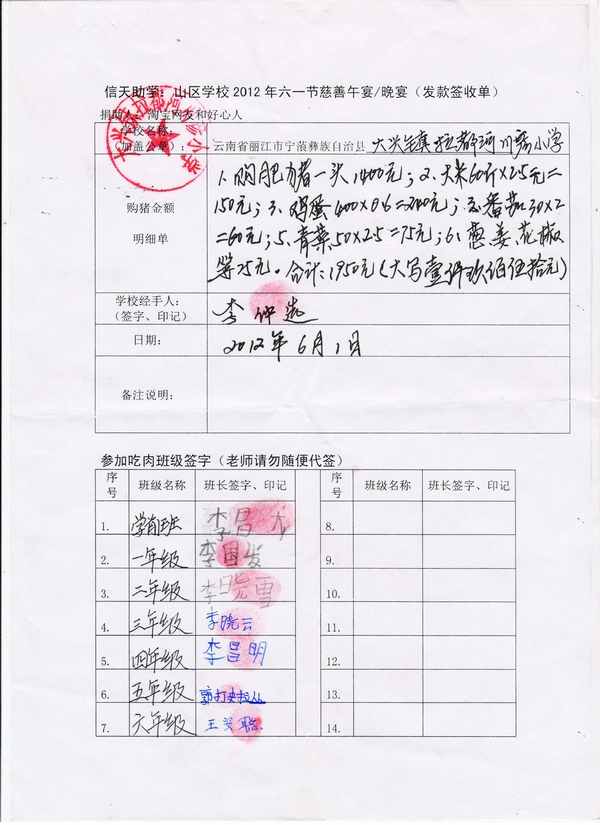 信天助学：山区学校2012年六一节慈善午宴/晚宴（发款签收单）
捐助人：淘宝网友和好心人
学校名称：
（加盖公章）：
云南省丽江市宁蒗彝族自治县 大兴镇拉都河
小学
购猪金额
明细单
1、购肥猪一头1400元；2、大米60斤×2.5元=
150元；3、鸡蛋400×0.6=240元；3、番茄30×2
=60元；5、青菜50×2.5=75元；6、葱、姜、花椒
等25元。合计：1950元（大写壹仟玖佰伍拾元）
学校经手人：
（签字、印记）
李仲
日期：
2012年6月1日
备注说明：
参加吃肉班级签字（老师请勿随便代签）
序号 班级名称 班长签字、印记 序号 班级名称 班长签字、印记
1. 学前班 李昌 8.
2. 一年级 李国发 9.
3. 二年级 李晓雪 10.
4. 三年级 李晓云 11.
5. 四年级 李昌明 12.
6. 五年级 13.
7. 六年级 王 聪 14.